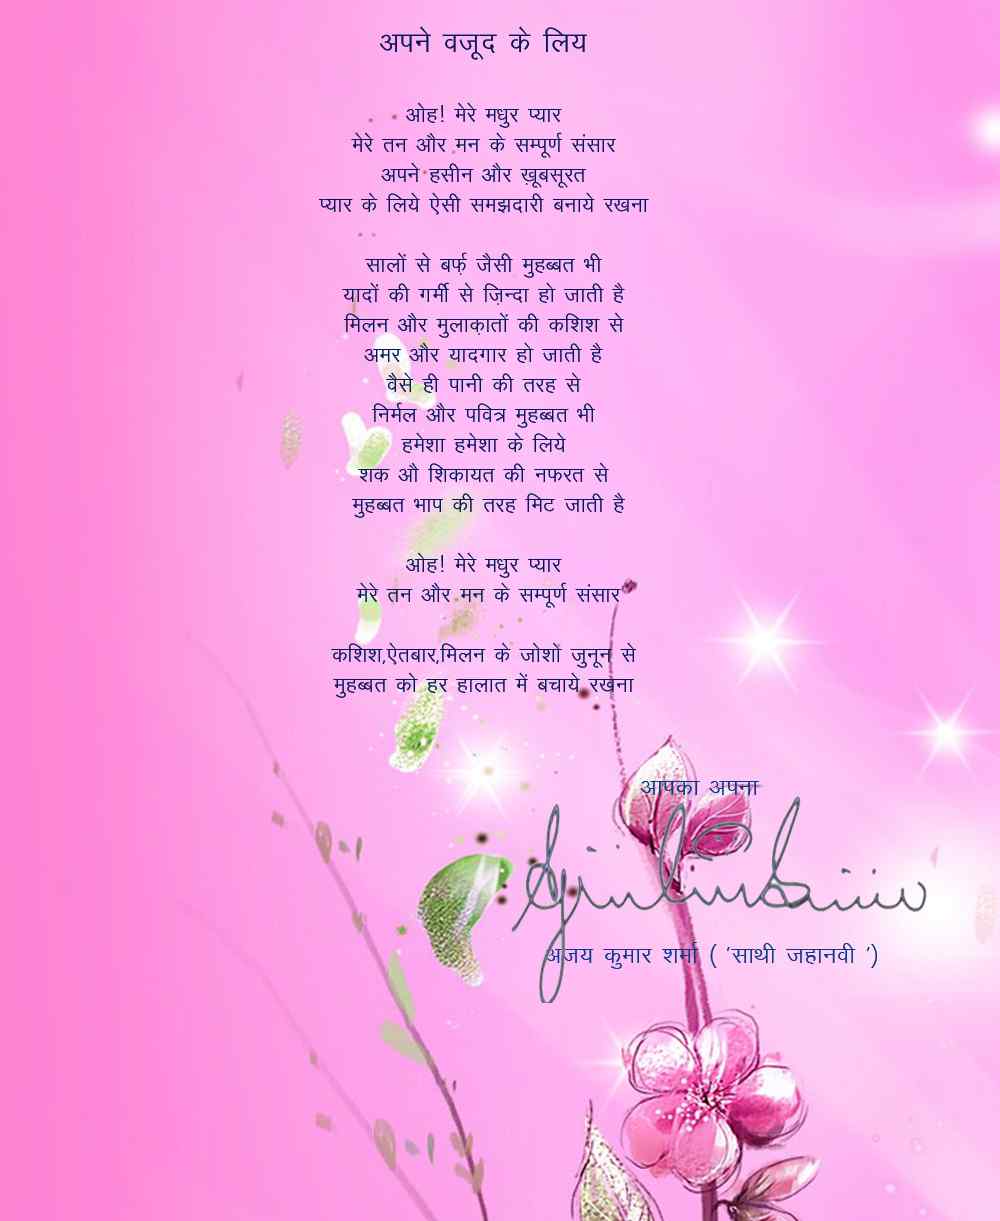 अपने वजूद के लिय
ओह! मेरे मधुर प्यार
मेरे तन और मन के सम्पूर्ण संसार
अपने हसीन और ख़ूबसूरत
प्यार के लिये ऐसी समझदारी बनाये रखना
सालों से बर्फ़ जैसी मुहब्बत भी
यादों की गर्मी से ज़िन्दा हो जाती है
मिलन और मुलाक़ातों की कशिश से
अमर और यादगार हो जाती है
वैसे ही पानी की तरह से
निर्मल और पवित्र मुहब्बत भी
हमेशा हमेशा के लिये
शक औ शिकायत की नफरत से
मुहब्बत भाप की तरह मिट जाती है
ओह! मेरे मधुर प्यार
मेरे तन और मन के सम्पूर्ण संसार
कशिश,ऐतबार,मिलन के जोशो जुनून से
मुहब्बत को हर हालात में बचाये रखना
आपका अपना
अजय कुमार शर्मा ( 'साथी जहानवी ')